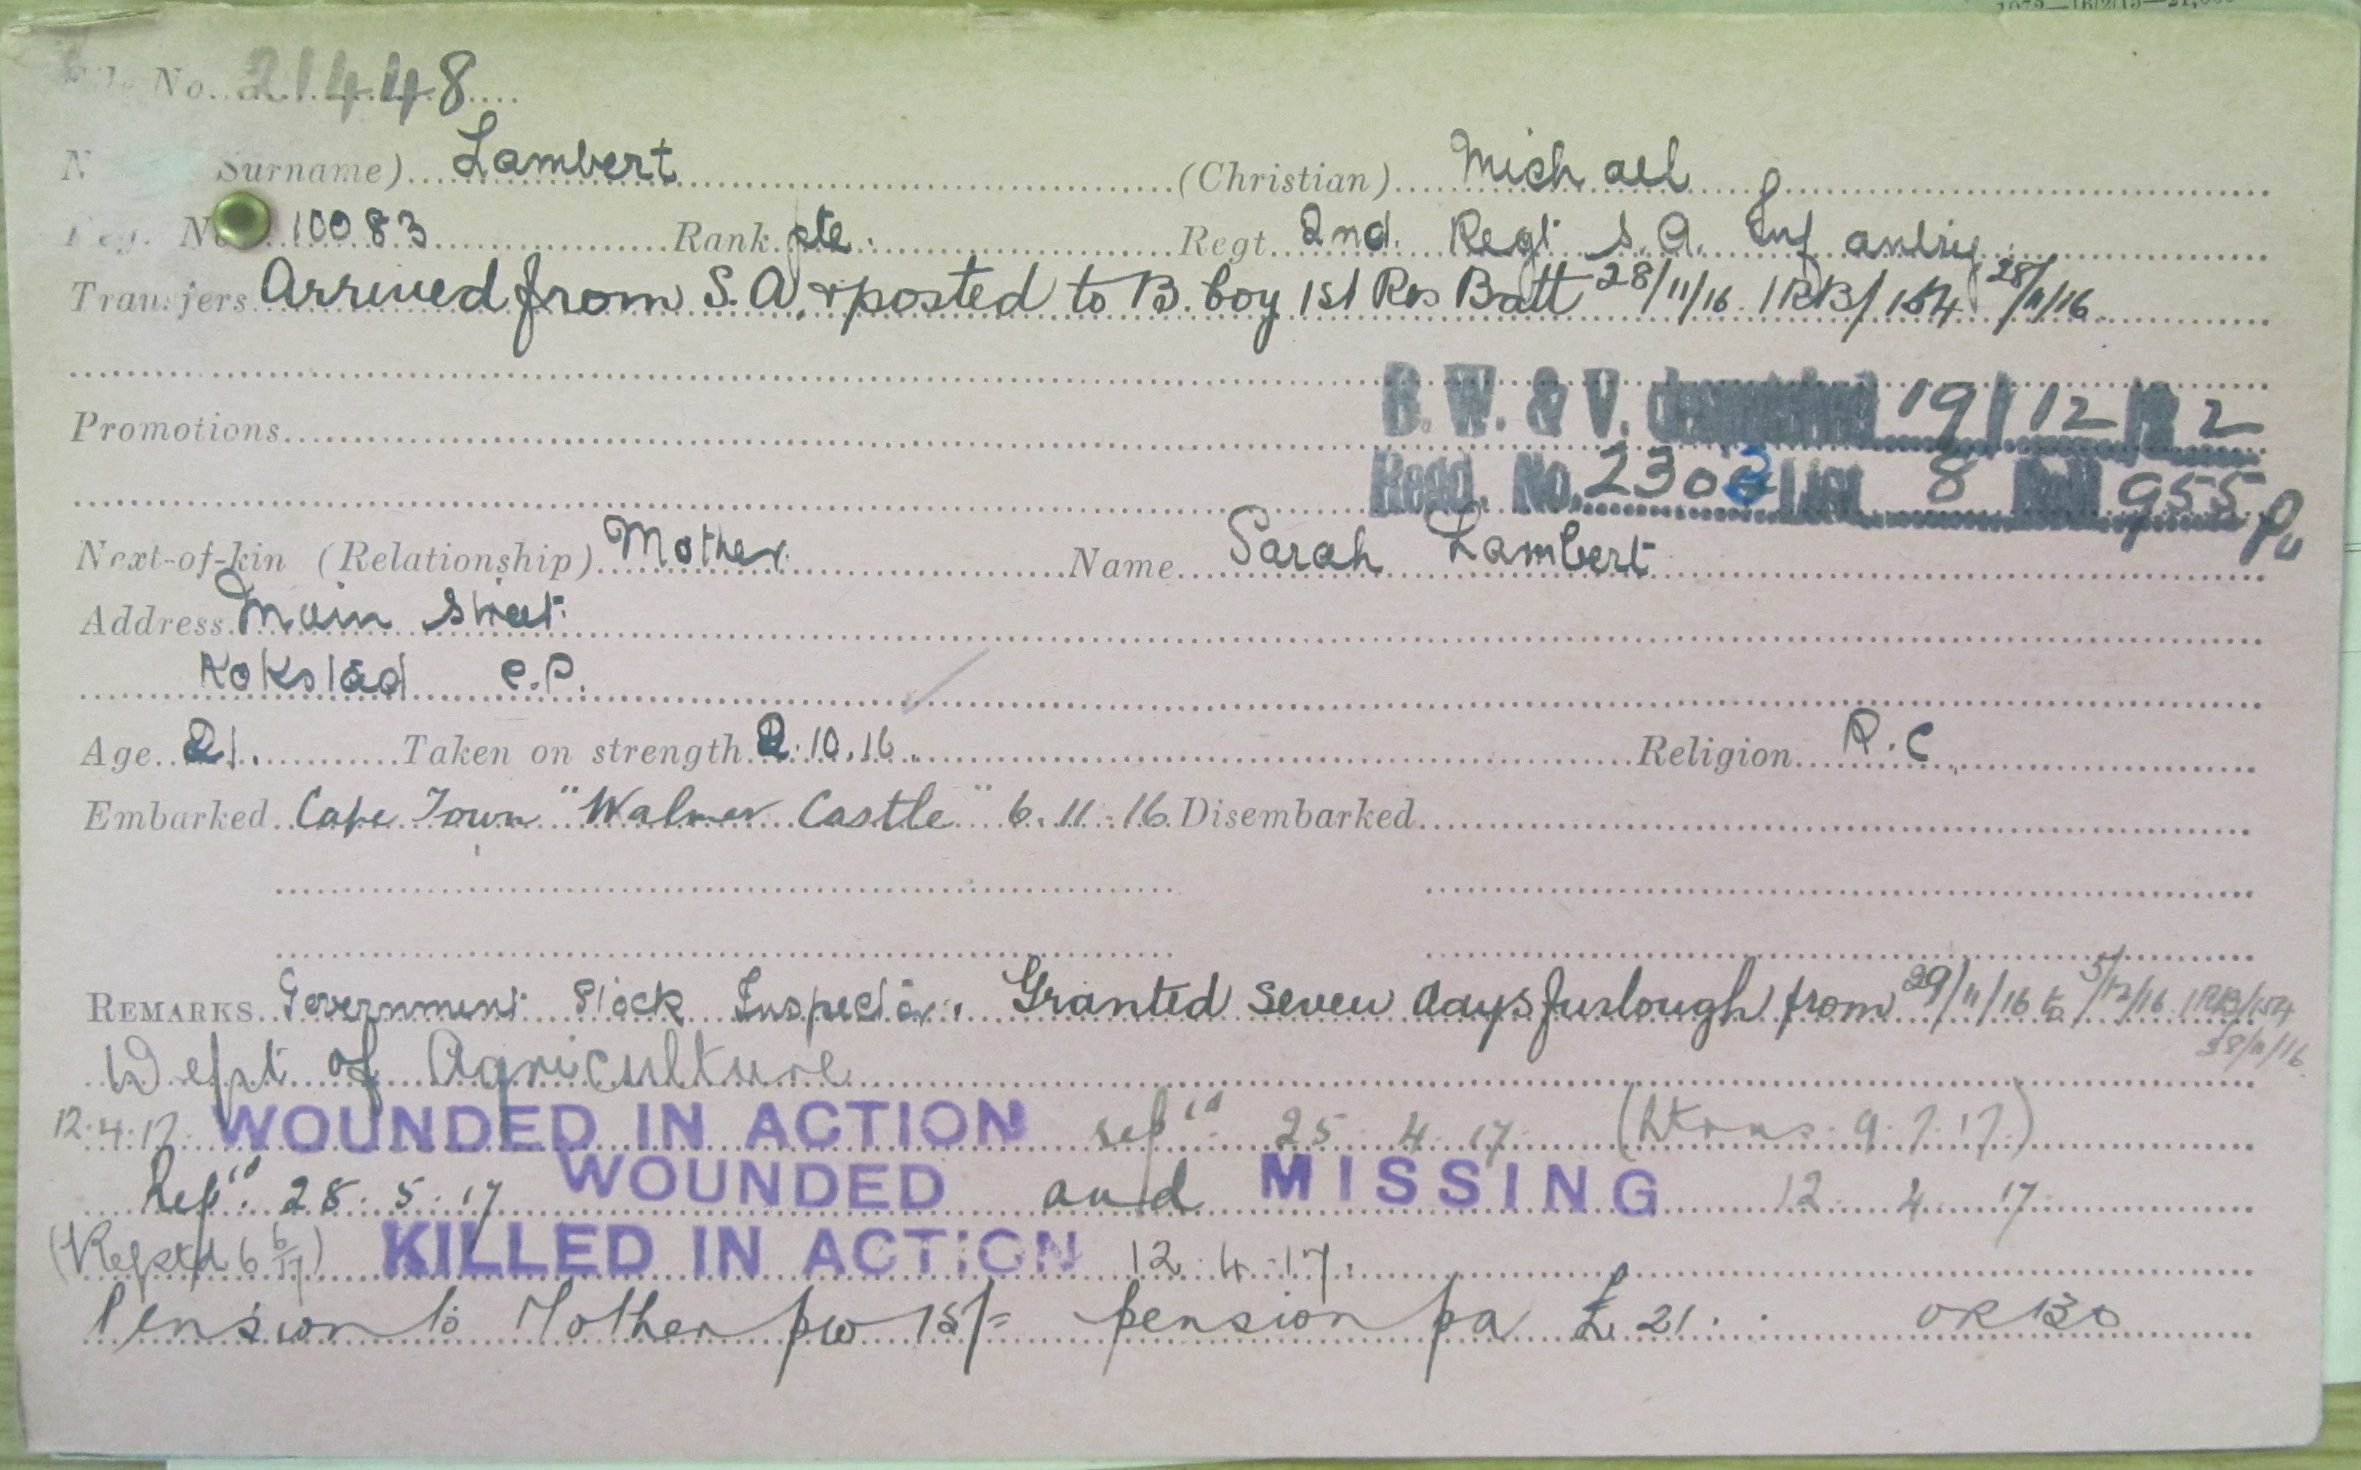 File No. 21448
(Surname) Lambert (Christian) Michael
Reg. No. 10083 Rank pte. Regt. 2nd. Regt S.A. Infantry
Transfers Arrived from S.A. & posted to B. Coy 1st Res Batt 28/11/16 1RB/154 28/11/16
B. W. & V. despatched 19/12/ 2
Promotions
Regd. No. 2302 List 8 Roll 955
Next-of-kin (Relationship) Mother. Name Sarah Lambert
Address Main Street
Kokstad C.P.
Age 21. Taken on strength 2.10.16. Religion R.C
Embarked Cape Town "Walmer Castle" 6.11.16 Disembarked
REMARKS Government Stock Inspector. Granted seven days furlough from 29/11/16 to 5/12/16 1RB/154
28/11/16
Dept of Agriculture
12.4.17 WOUNDED IN ACTION rep'd. 25.4.17 9.7.17)
Rep'd. 28.5.17 WOUNDED and MISSING 12.4.17.
KILLED IN ACTION 12.4.17.
Pension to Mother pw 15/= pension pa £21.